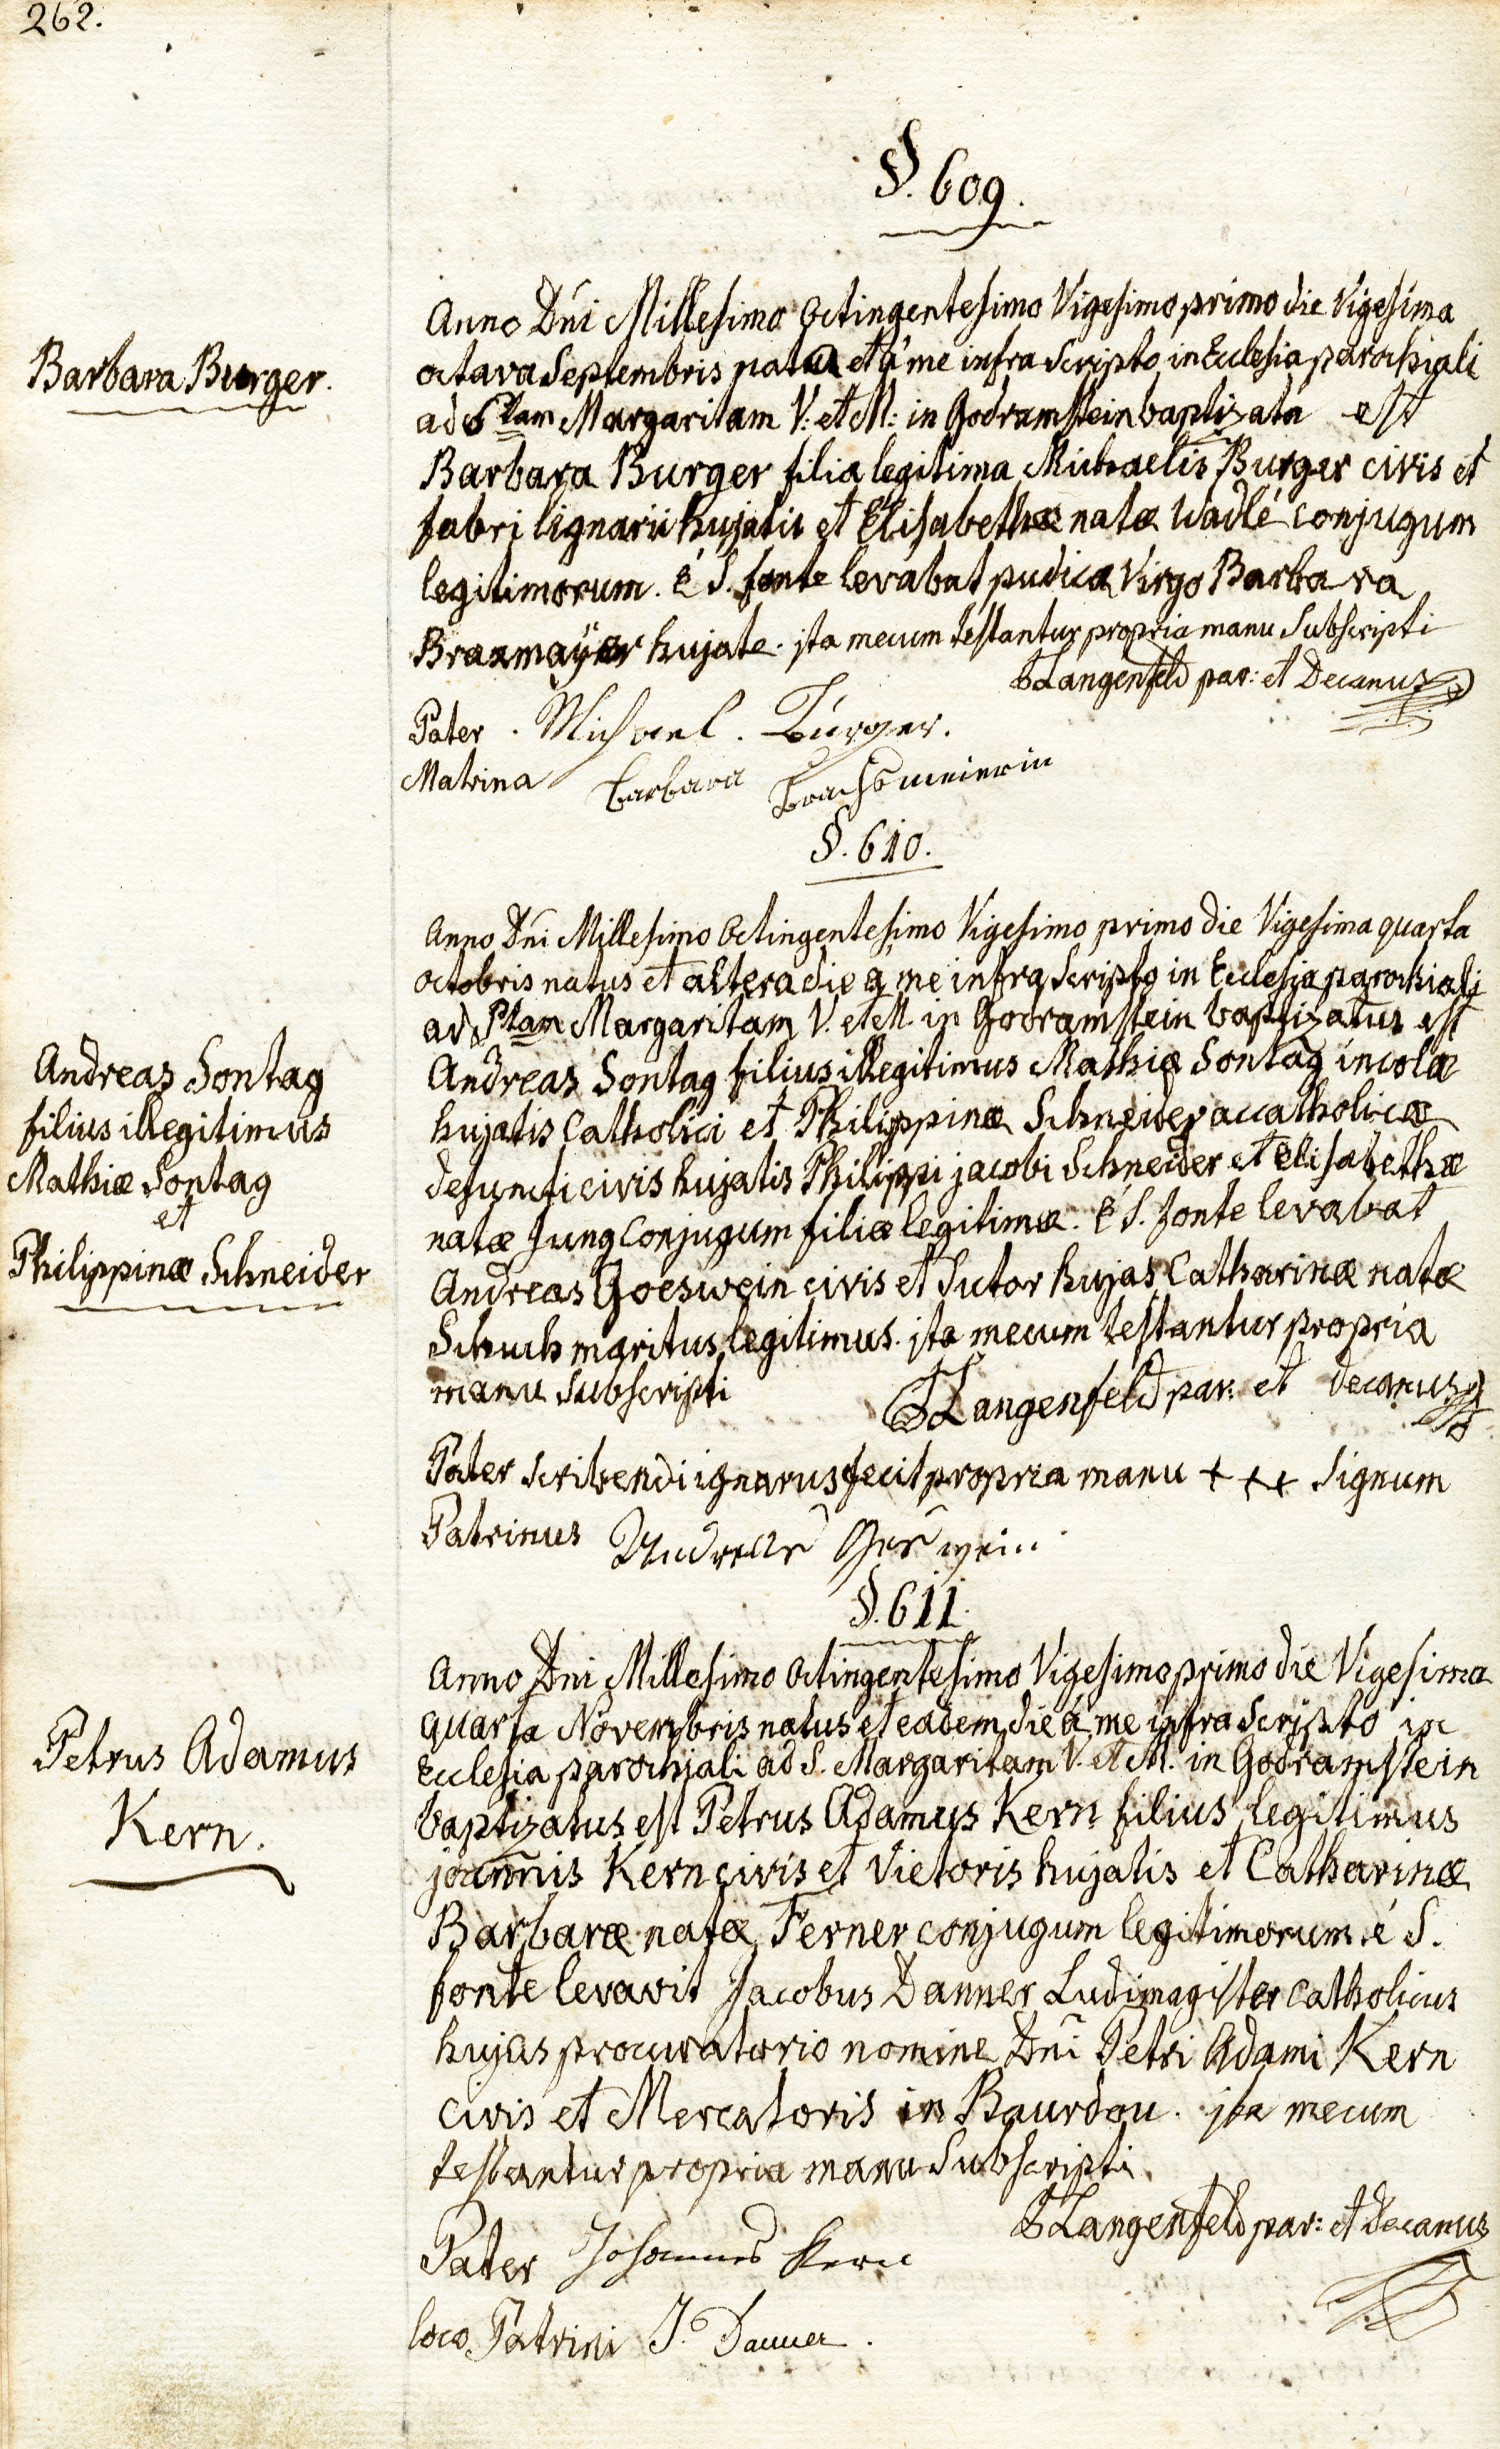 262.
§. 609.
Barbara Burger.
Anno Dni Millesimo Octingentesimo Vigesimo primo die Vigesima
octava Septembris nata et á me infra Scripto in Ecclesia parochiali
ad Stam Margaritam V: et M: in Godramstein baptizata est
Barbara Burger filia legitima Michaelis Burger civis et
fabri lignarii hujatis et Elisabethæ natæ Wadlé conjugum
legitimorum. é S. fonte levabat pudica Virgo Barbara
Braxmaÿer hujate. ita mecum testantur propria manu Subscripti
Langenfeld par: et Decanus
Pater . Michael . Burger.
Matrina Barbara Brachsmeierin
§. 610.
Andreas Sontag
filius illegitimus
Mathiæ Sontag
et
Philippinæ Schneider
Anno Dni Millesimo Octingentesimo Vigesimo primo die Vigesima quarta
octobris natus et altera die á me infra Scripto in Ecclesia parochiali
ad Stam Margaritam V. et M. in Godramstein baptizatus est
Andreas Sontag filius illegitimus Mathiæ Sontag incolæ
hujatis Catholici et Philippinæ Schneider accatholicæ
defuncti civis hujatis Philippi jacobi Schneider et Elisabethæ
natæ Jung Conjugum filiæ legitimæ. é S. fonte levabat
Andreas Goeswein civis et Sutor hujas Catharinæ natæ
Schuch maritus legitimus. ita mecum testantur propria
manu Subscripti
Langenfeld par: et decanus
Pater Scribendi ignarus fecit propria manu + + + Signum
Patrinus Andreas Geswein
§. 611.
Petrus Adamus
Kern.
Anno Dni Millesimo Octingentesimo Vigesimo primo die Vigesima
quarta Novembris natus et eadem die á me infra Scripto in
Ecclesia parochiali ad S. Margaritam V. et M. in Godramstein
baptizatus est Petrus Adamus Kern filius legitimus
joannis Kern civis et Vietoris hujatis et Catharinæ
Barbaræ natæ Ferner conjugum legitimorum. é S.
fonte levavit Jacobus Danner Ludimagister Catholicus
hujas procuratorio nomine Dni Petri Adami Kern
civis et Mercatoris in Bourdou. ita mecum
testantur propria manu Subscripti.
Langenfeld par: et decanus
Pater Johannes Kern
loco Patrini J. Danner.